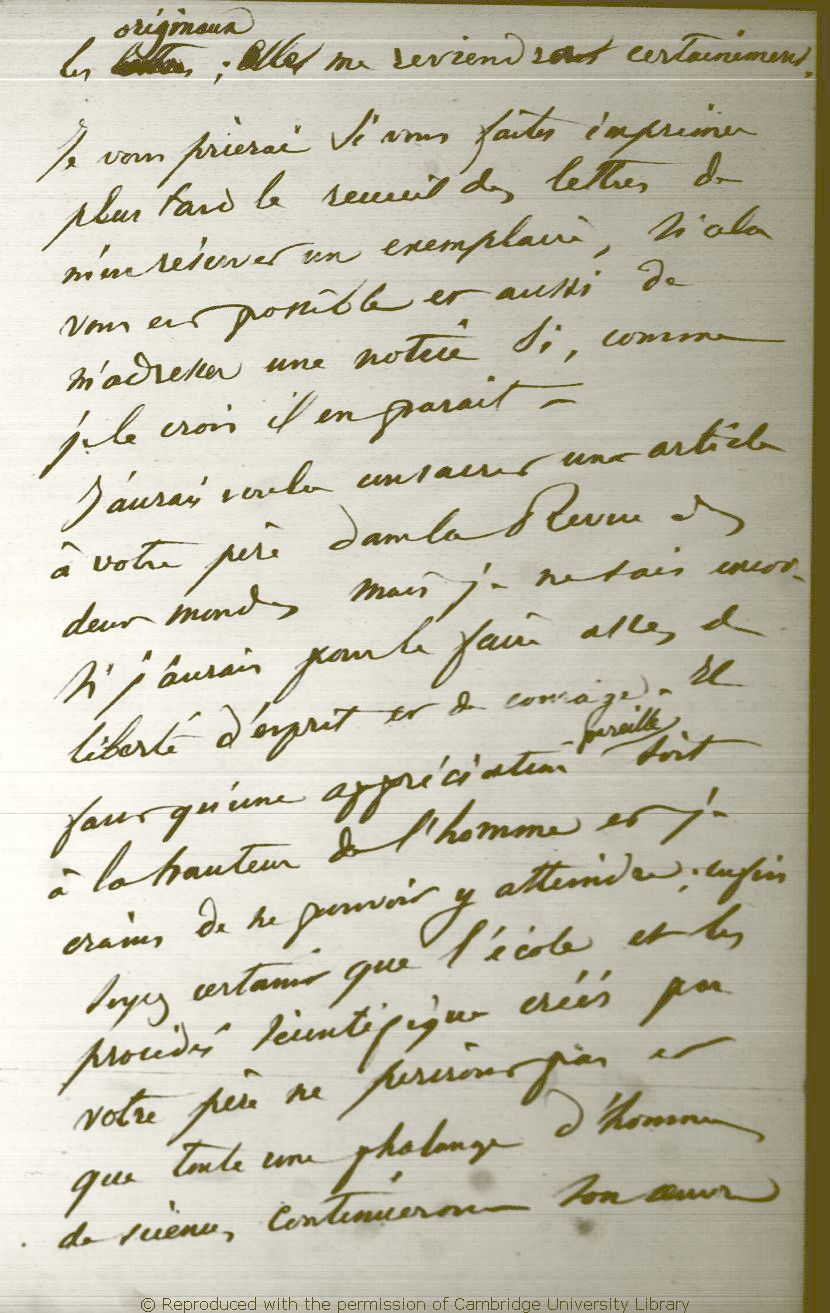 originaux
les lettres ; elles me reviendront certainement.
Je vous prierai si vous faites imprimer
plus tard le recueil des lettres de
m'en réserver un exemplaire, si cela
vous est possible et aussi de
m'adresser une notice si, comme
je le crois il en parait —
J'aurais voulu consacrer un article
à votre père dans la Revue des
deux mondes mais je ne sais encore
si j'aurais pour le faire assez de
liberté d'esprit et de courage. Il
pareille
faut qu'une appréciation soit
à la hauteur de l'homme et je
crains de ne pouvoir y atteindre ; enfin
soyez certains que l'école et les
procédés scientifiques créés par
votre père ne periront pas et
que toute une phalange d'hommes
de sciences continueront son œuvre
© Reproduced with the permission of Cambridge University Library